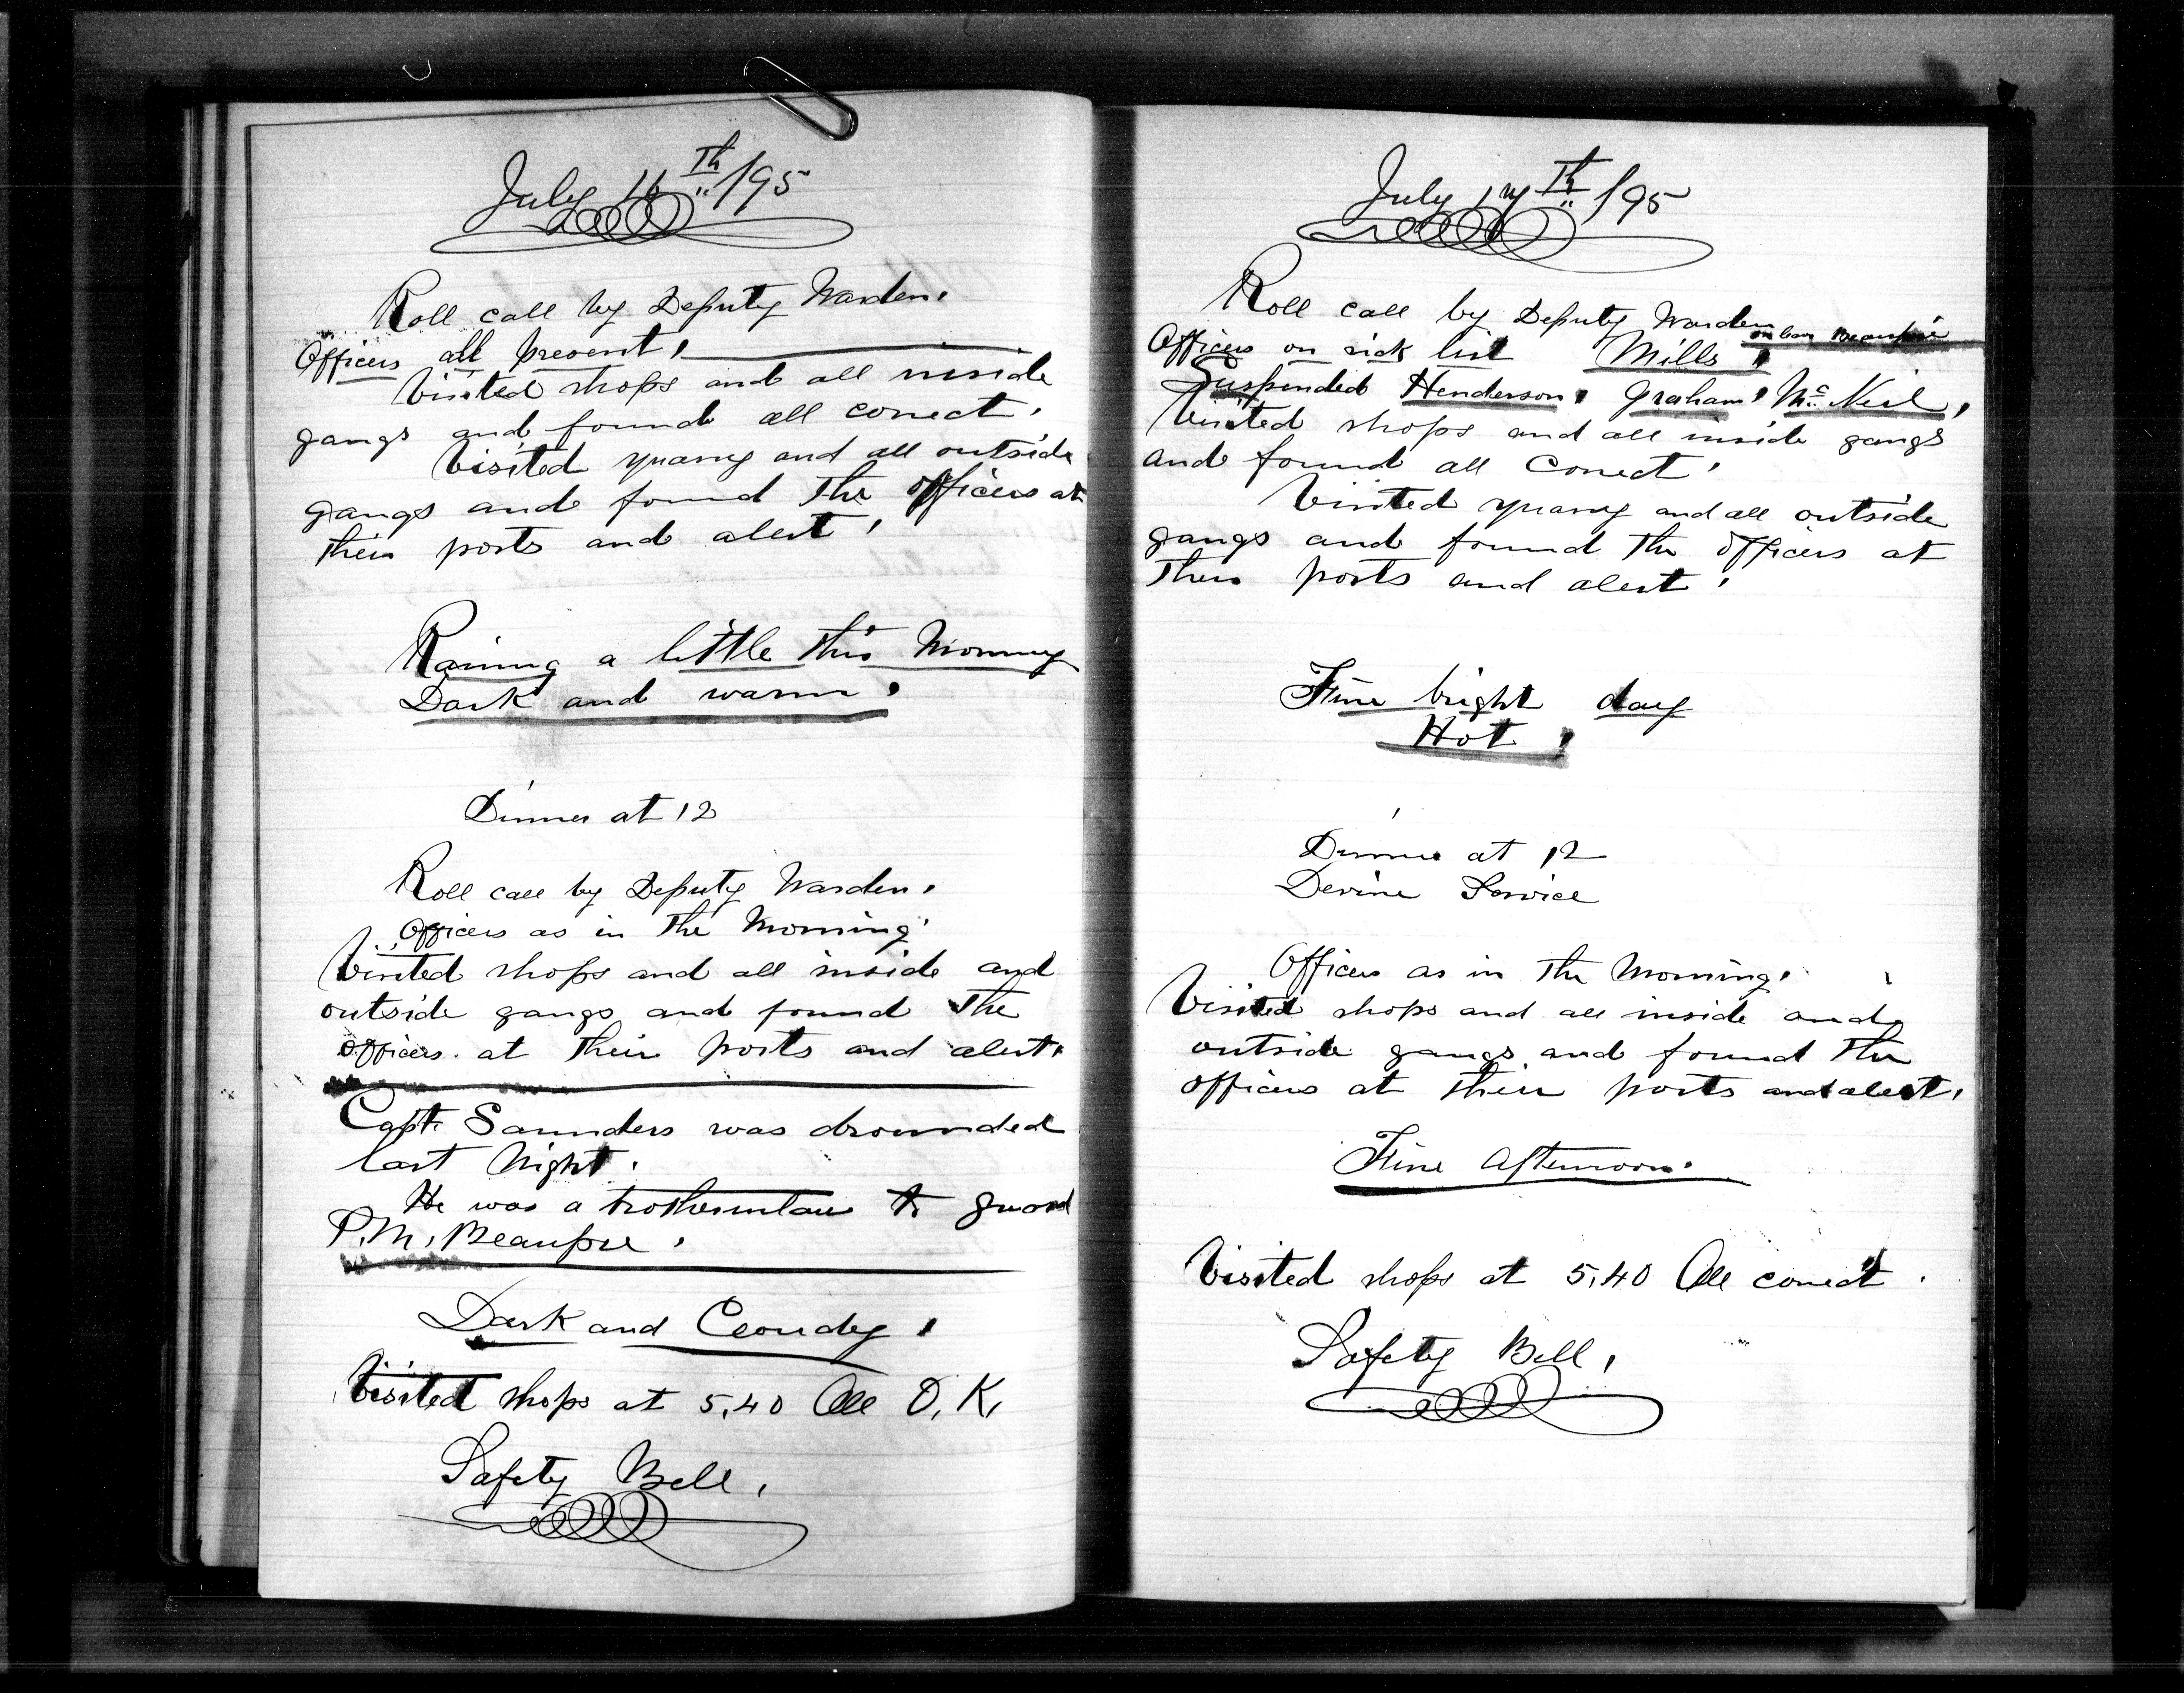 July 16th /95
Roll call by Deputy Warden.
Officers all present.
Visited shops and all inside
gangs and found all correct.
Visited quarry and all outside
gangs and found The officers at
Their posts and alert.
Raining a little this Morning
Dark and warm.
Dinner at 12
Roll call by Deputy Warden.
Officers as in The Morning.
Visited shops and all inside and
outside gangs and found The
officers. at Their posts and alert.
Capt. Saunders was drounded
last Night.
He was a brotherinlaw to guard
P.M. Beaupre.
Dark and Cloudy.
Visited shops at 5.40 All O.K.
Safety Bell.
July 17th /95
Roll call by Deputy Warden
on leav Beaupre
Officers on sick list Mills.
Suspended Henderson, Graham, McNeil,
Visited shops and all inside gangs
and found all Correct.
Visited quarry and all outside
gangs and found The officers at
Their posts and alert.
Fine bright day
Hot.
Dinner at 12
Devine Service
Officers as in The Morning.
Visited shops and all inside and
outside gangs and found The
officers at Their posts and alert.
Fine Afternoon.
Visited shops at 5.40 All correct.
Safety Bell.